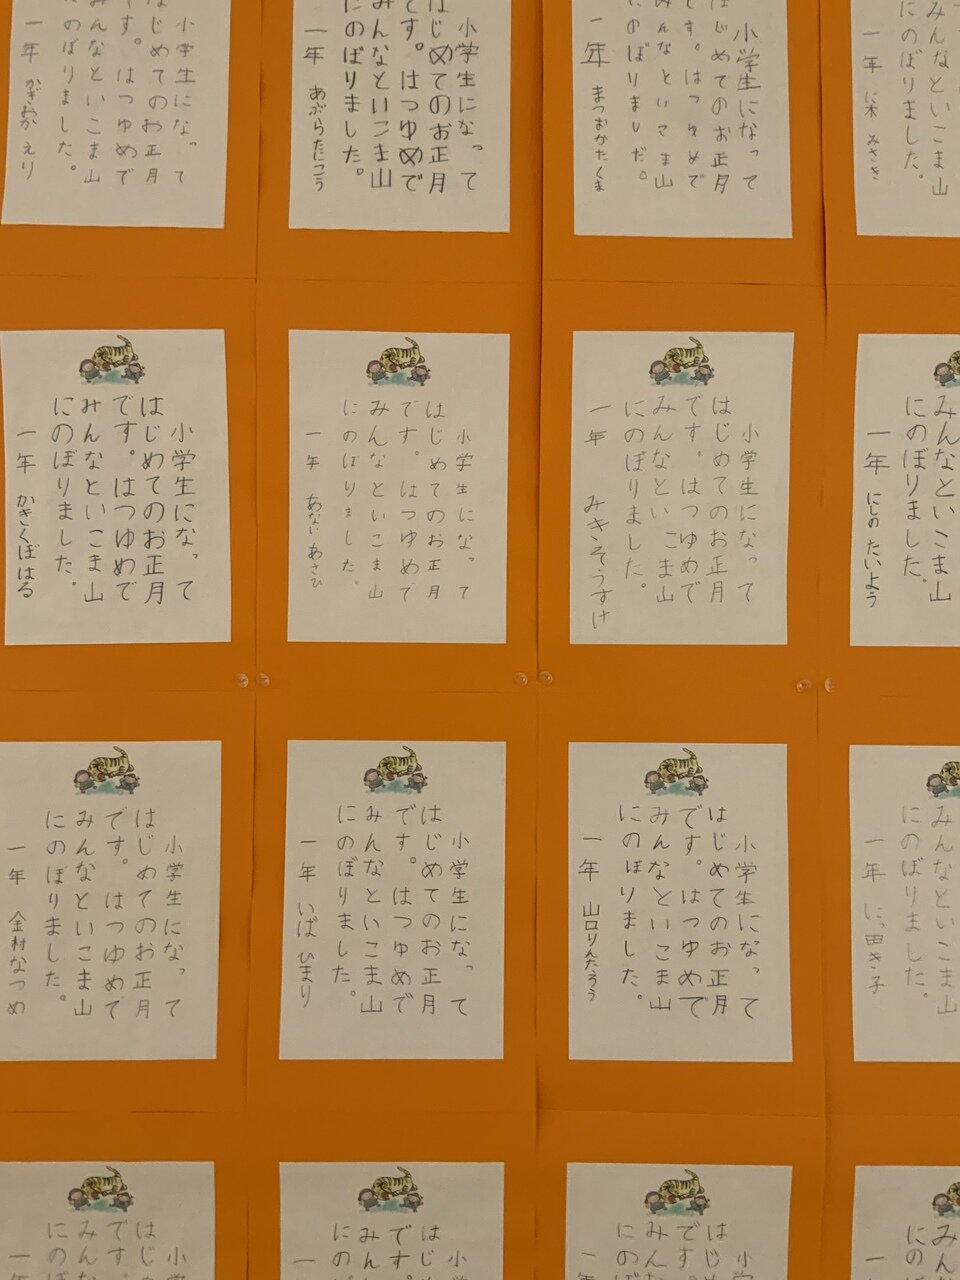 小学生になって
はじめてのお正月
す。はつゆめで
んなといこま山
のぼりました。
一年 かぎおか えり
小学生になって
はじめてのお正月
です。はつゆめで
みんなといこま山
にのぼりました。
一年 あぶらたにこう
小学生になって
はじめてのお正月
です。はつゆめで
みんなといこま山
にのぼりました。
一年 まつおかたくま
みんなといこま山
にのぼりました。
一年 に木 みさき
小学生になって
はじめてのお正月
です。はつゆめで
みんなといこま山
にのぼりました。
一年 かきくぼはる
小学生になって
はじめてのお正月
です。はつゆめで
みんなといこま山
にのぼりました。
一年 あない あさひ
小学生になって
はじめてのお正月
です。はつゆめで
みんなといこま山
にのぼりました。
一年 みきそうすけ
みんなといこま山
にのぼりました。
一年 にしの たいよう
小学生になって
はじめてのお正月
です。はつゆめで
みんなといこま山
にのぼりました。
一年 金村なつめ
小学生になって
はじめてのお正月
です。はつゆめで
みんなといこま山
にのぼりました。
一年 いば ひまり
小学生になって
はじめてのお正月
です。はつゆめで
みんなといこま山
にのぼりました。
一年 山口りんたろう
みんなといこま山
にのぼりました。
一年 にっ田さき子
小学
はじ
です。
みんな
にのぼ
一年
小学
はじ
です。
みんな
にのぼ
一
小学
はじめ
です。
みんな
にのぼ
一年
みん
にの
一